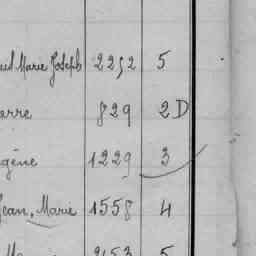 Marie Joseph 2252 5
erre 829 2D
gène 1229 3
Jean, Marie 1558 4